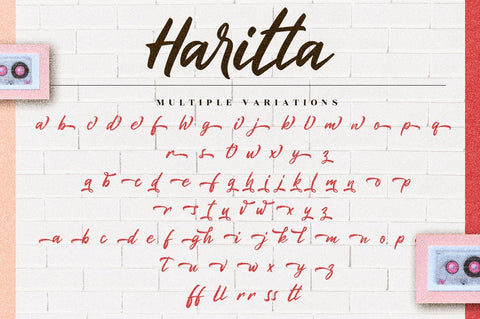 Haritta
MULTIPLE VARIATIONS
a b c d e f h g i j k l m n o p q
r s t w x y z
a b c d e f g h i j k l m n o p
r s t u v w x y z
a b c d e f g h i j k l m n o p
t u v w x y z
ff ll rr ss tt